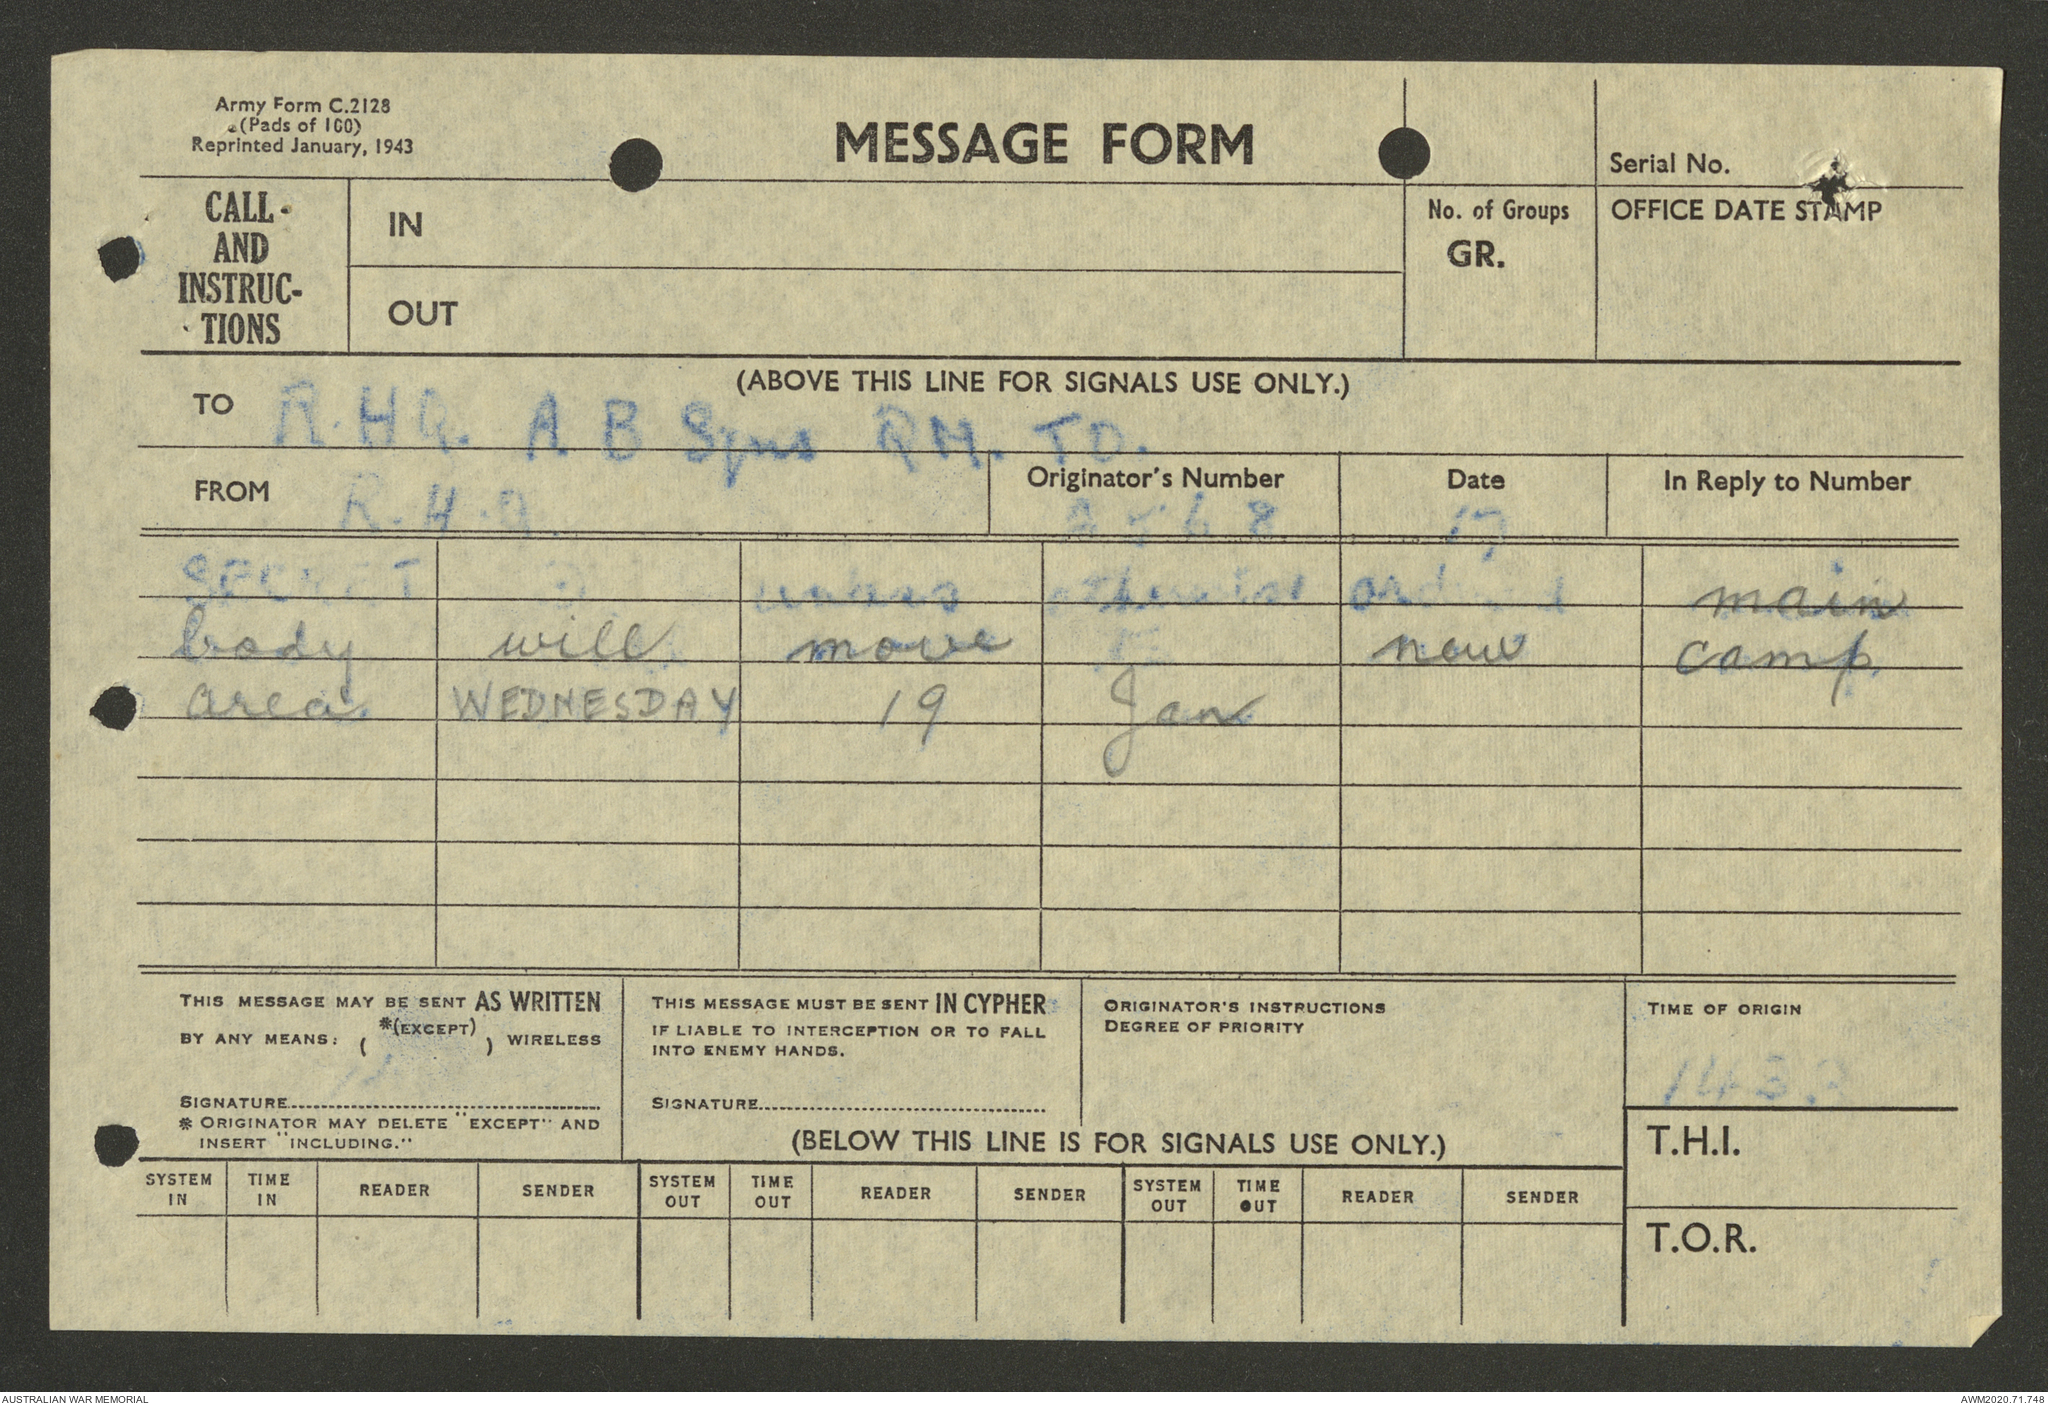 Army Form C.2128
(Pads of 100)
Reprinted January, 1943
MESSAGE FORM
Serial No.
CALL
AND
INSTRUC-
TIONS
IN
OUT
No. of Groups
GR.
OFFICE DATE STAMP
(ABOVE THIS LINE FOR SIGNALS USE ONLY.)
TO R.HQ. A B Sqns QM. TO.
FROM R.H.Q.
Originator's Number
Date 17
In Reply to Number
SECRET unless otherwise ordered main
body will move new camp
area WEDNESDAY 19 Jan
THIS MESSAGE MAY BE SENT AS WRITTEN
BY ANY MEANS: ( *(EXCEPT) ) WIRELESS
SIGNATURE
* ORIGINATOR MAY DELETE "EXCEPT" AND
INSERT "INCLUDING."
THIS MESSAGE MUST BE SENT IN CYPHER
IF LIABLE TO INTERCEPTION OR TO FALL
INTO ENEMY HANDS.
SIGNATURE
ORIGINATOR'S INSTRUCTIONS
DEGREE OF PRIORITY
TIME OF ORIGIN
(BELOW THIS LINE IS FOR SIGNALS USE ONLY.)
T.H.I.
SYSTEM IN TIME IN READER SENDER SYSTEM OUT TIME OUT READER SENDER SYSTEM OUT TIME OUT READER SENDER
T.O.R.
AUSTRALIAN WAR MEMORIAL
AWM2020.71.748